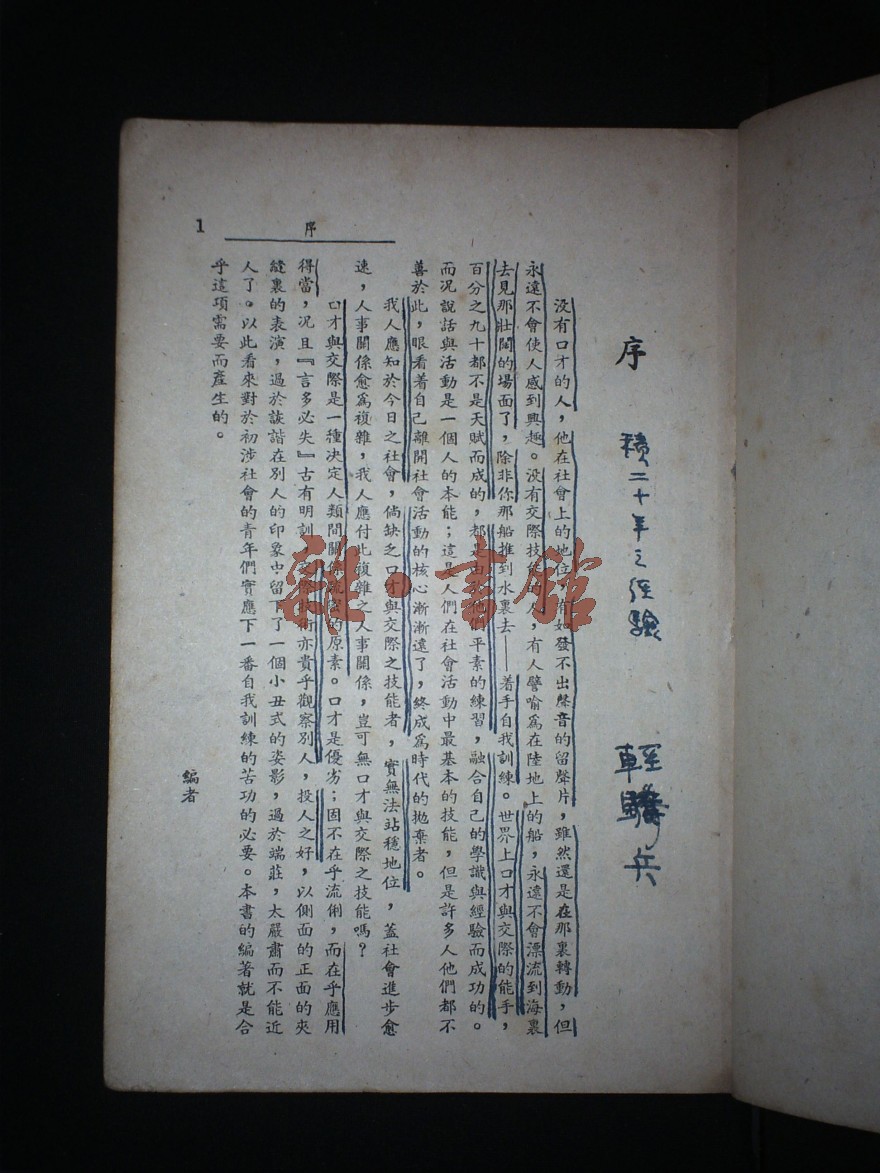 序
積二十年之經驗
輕騎兵
没有口才的人，他在社會上的地位，有如發不出聲音的留聲片，雖然還是在那裏轉動，但
永遠不會使人感到興趣。没有交際技能的人，有人譬喻爲在陸地上的船，永遠不會漂流到海裏
去見那壯闊的場面了，除非你那船推到水裏去——着手自我訓練。世界上口才與交際的能手，
百分之九十都不是天賦而成的，都是由於他們平素的練習，融合自己的學識與經驗而成功的。
而况說話與活動是一個人的本能；這是人們在社會活動中最基本的技能，但是許多人他們都不
善於此，眼看着自己離開社會活動的核心漸漸遠了，終成爲時代的拋棄者。
我人應知於今日之社會，倘缺乏口才與交際之技能者，實無法站穩地位，蓋社會進步愈
速，人事關係愈爲複雜，我人應付此複雜之人事關係，豈可無口才與交際之技能嗎？
口才與交際是一種決定人類間關係疏密的原素。口才是優劣；固不在乎流俐，而在乎應用
得當，况且『言多必失』古有明訓，交際技術亦貴乎觀察別人，投人之好，以側面的正面的夾
縫裏的表演，過於詼諧在別人的印象中留下了一個小丑式的姿影，過於端莊，太嚴肅而不能近
人了。以此看來對於初涉社會的青年們實應下一番自我訓練的苦功的必要。本書的編著就是合
乎這項需要而產生的。
編者
序
1
雜·書館